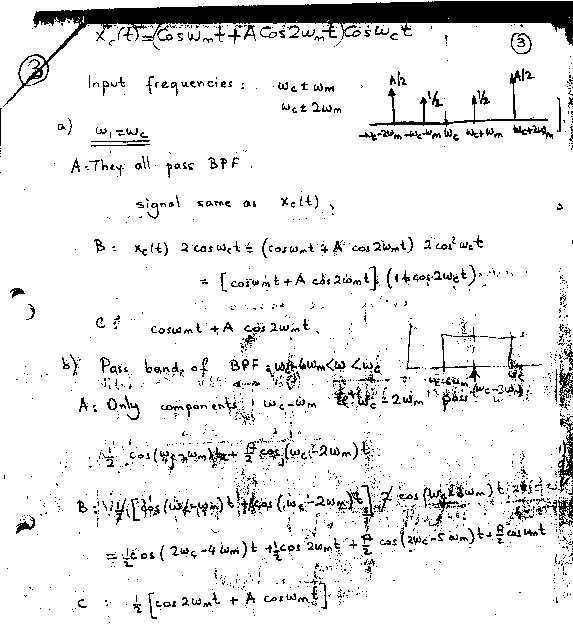 x_c(t)=(Cos ω_m t + A Cos 2ω_m t) Cos ω_c t
3
3
Input frequencies : ω_c ± ω_m
ω_c ± 2ω_m
A/2 1/2 1/2 A/2
ω_c-2ω_m ω_c-ω_m ω_c ω_c+ω_m ω_c+2ω_m
a) ω_1 = ω_c
A: They all pass BPF.
signal same as x_c(t)
B : x_c(t) 2 cos ω_c t = (cos ω_m t + A cos 2ω_m t) 2 cos² ω_c t
= [cos ω_m t + A cos 2ω_m t] (1 + cos 2ω_c t)
C : cos ω_m t + A cos 2ω_m t
b) Pass band of BPF ω_c-6ω_m < ω < ω_c
A : Only components ω_c-ω_m ω_c-2ω_m pass
1/2 cos (ω_c-ω_m) t + A/2 cos (ω_c-2ω_m) t
B : cos (ω_c-ω_m) t cos (ω_c-2ω_m) t] 2 cos (ω_c-3ω_m) t
= 1/2 cos (2ω_c-4ω_m) t + 1/2 cos 2ω_m t + A/2 cos (2ω_c-5ω_m) t + A/2 cos ω_m t
C : 1/2 [cos 2ω_m t + A cos ω_m t]